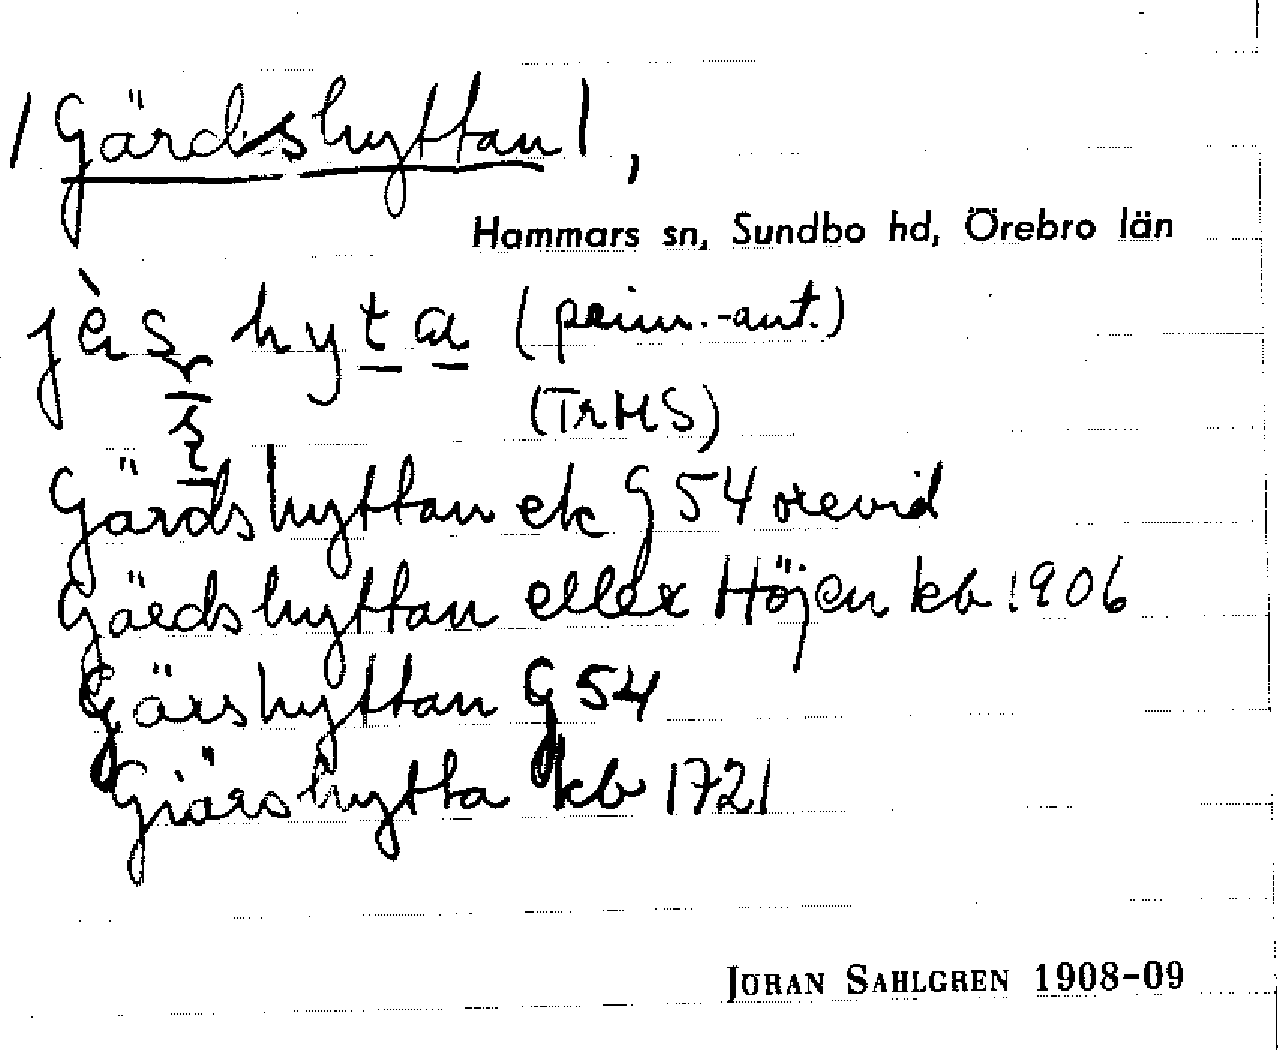 |Gärdshyttan|,
Hammars sn, Sundbo hd, Örebro län
jès hyta (prim.-ant.)
(TrHS)
Gärdshyttan ek G 54 orevid
Gärdshyttan eller Höjen kb 1906
Gärshyttan G 54
Giärshytta kb 1721
JÖRAN SAHLGREN 1908-09